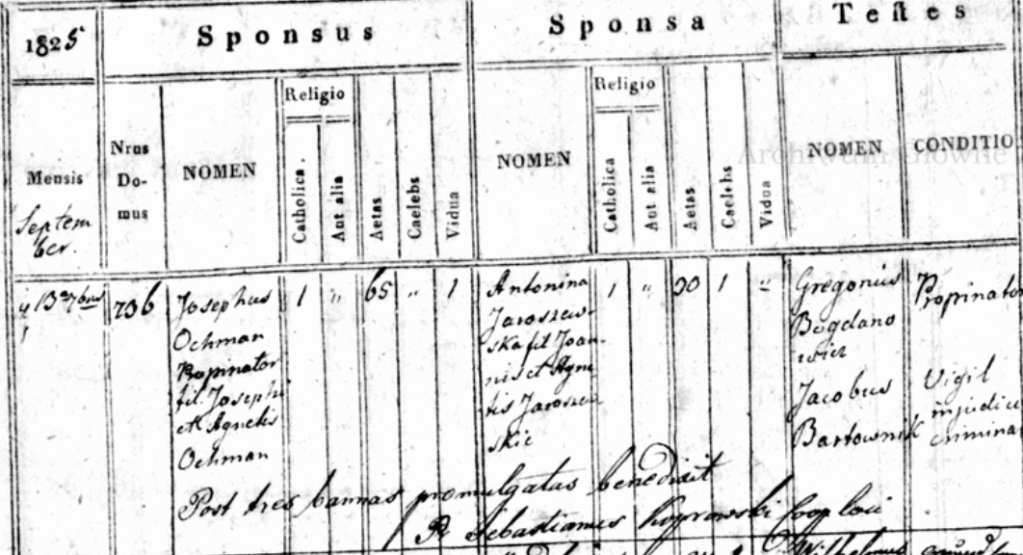 1825
Sponsus
Sponsa
Testes
Mensis
September.
Nrus
Do-
mus
NOMEN
Religio
Catholica.
Aut alia
Aetas
Caelebs
Vidua
NOMEN
Religio
Catholica
Aut alia
Aetas
Caelebs
Vidua
NOMEN
CONDITIO
736
Josephus
Ochman
Propinator
fil. Josephi
et Agnetis
Ochman
1
"
65
"
1
Antonina
Jaroszew-
ska fil Joan-
nis et Agne
tis Jarosze
skie
1
"
30
1
"
Gregorius
Bogdano
wicz
Jacobus
Bartownik
Propinator
Vigil
criminal
Post tres bannas promulgatas benedixit
Sebastianus Coop loci